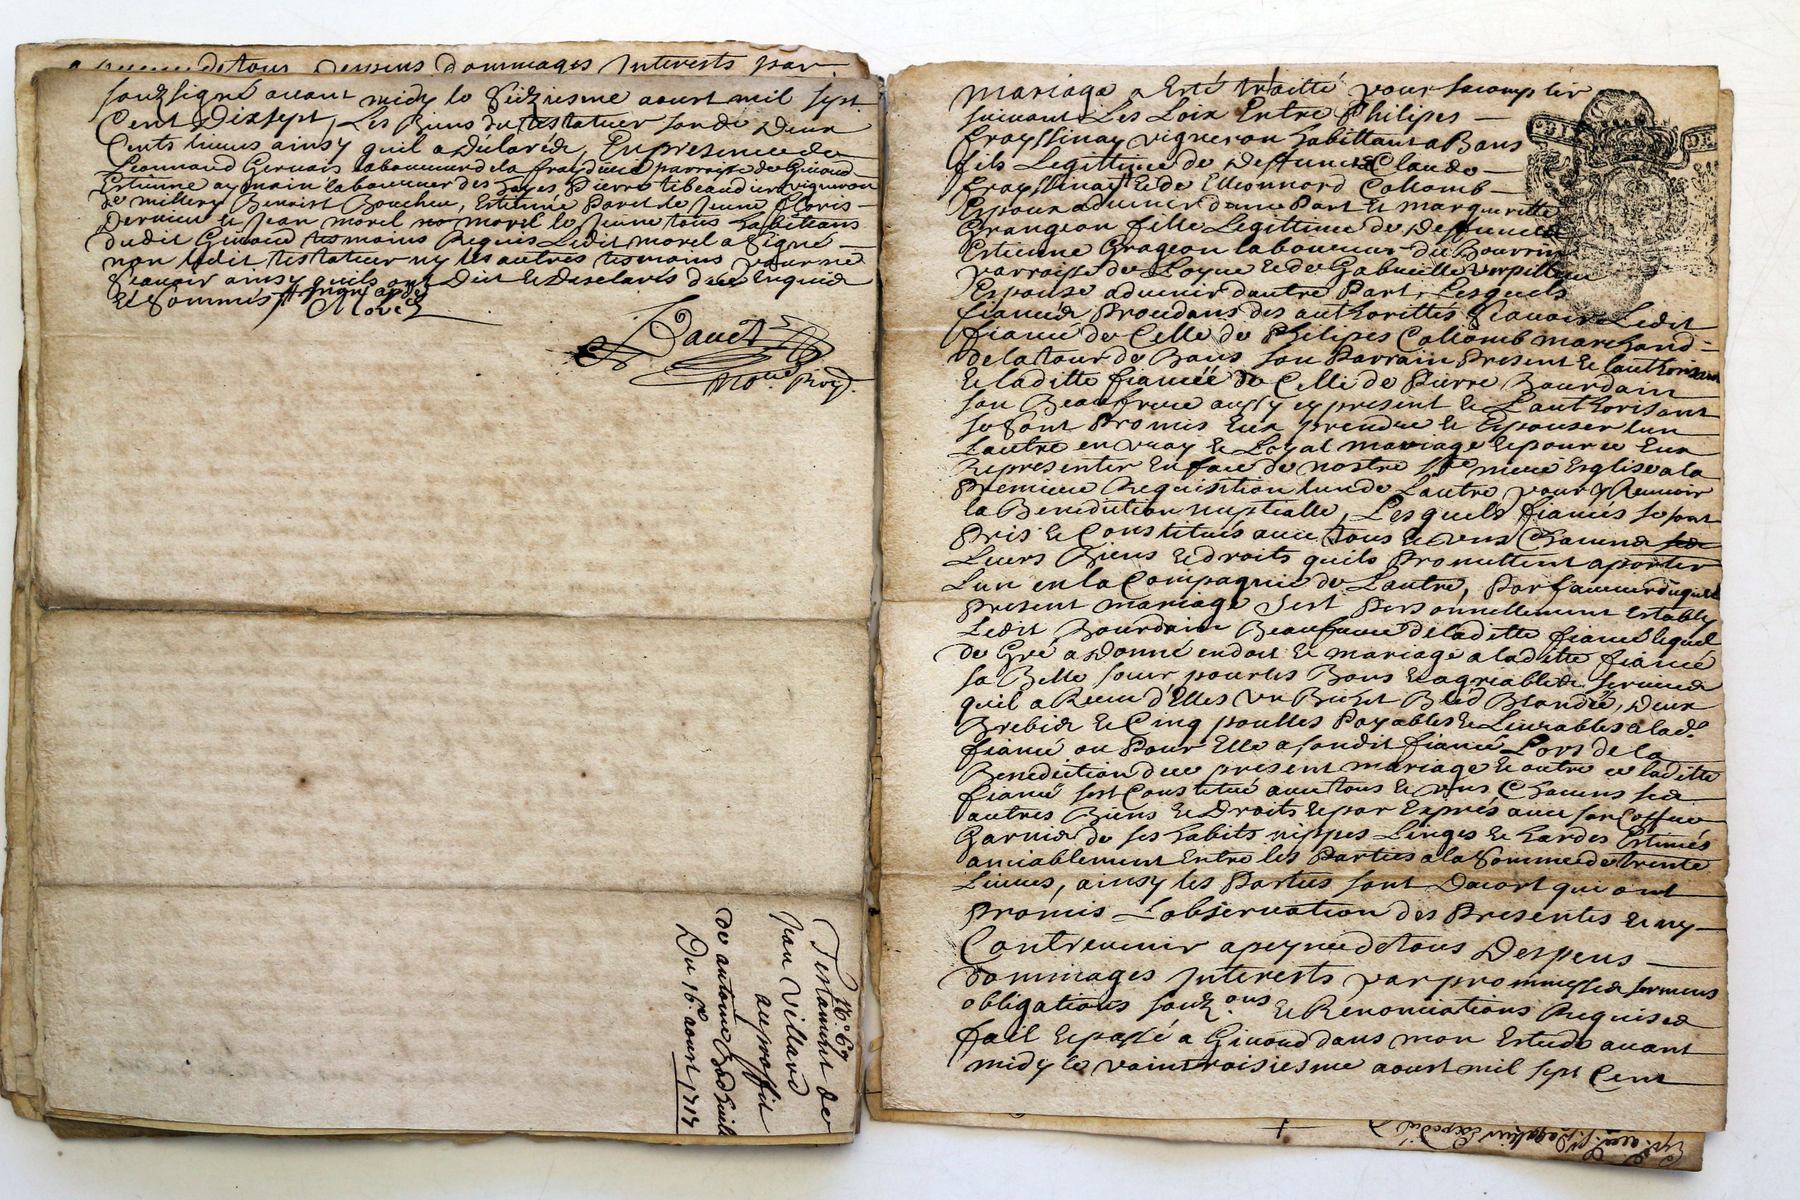 detous despens dommages Interests par
souzsigné avant midy le Seiziesme aoust mil sept
Cent Dixsept, Les Biens du testateur sont de Deux
Cents livres ainsy quil a déclaré, En presence de
Leonnard Gervais laboureur de la parroisse de Givord
Estienne aymain laboureur des hayes Pierre tibeaudier vigneron
de millery Benoist Boucheu, Estienne Paret le jeune
Dernier et Jean morel no morel le jeune tous habitans
dudit Givord tesmoins Requis Ledit morel a Signé
non ledit testateur ny les autres tesmoins pour ne
Scavoir ainsy quils ont Dit et Desclaré de ce Enquis
Et Sommés
Morel
no.re Roy.
N.o 69
Testament de
Jean Villard
au proffit
de antoine
Du 16.e aoust 1717
mariage a Esté traitté pour sacomplir
suivant Les Loix Entre Philipes
frayssinay vigneron habittant a Bans
fils Legittime de deffunct Claude
frayssinay Et de Elleonnord Colliomb
Espoux advenir dune Part Et margueritte
Grangeon fille Legittime de deffunct
Estienne Grageon laboureur du Bourrin
parroisse de Loyre Et de Gabrielle Verpilleu
Espouse advenir dautre Part, Lesquels
fiancés Procedans des authorittés scavoir Ledit
fiancé de Celle de Philipes Colliomb marchand
de la tour de Bans son Parrain Present Et lauthorisant
Et laditte fiancée de Celle de Pierre Bourdain
son Beaufrere aussy cy present Et Lauthorisant
se sont Promis Eux prendre Et Espouser lun
Lautre en vray Et Loyal mariage Et pour ce Eux
Representer En face de nostre S.te mere Esglise a la
Premiere Requisition lun de Lautre pour y Recevoir
la Benediction nuptialle, Lesquels fiancés se sont
Pris Et Constitués avec tous Et uns Chacuns
Leurs Biens Et droits quils Promettent aporter
Lun en la Compagnie de Lautre, Par faveur duquel
present mariage Sest Personnellement Estably
Ledit Bourdain Beaufrere de laditte fiancé lequel
de Gré a Donné en dot Et mariage a laditte fiancé
sa Belle soeur pour les Bons Et agreables services
quil a Receu d'Elles un Bichet Bled Blondée, deux
Brebis Et Cinq poulles Payables Et Livrables a lad.e
fiancé ou Pour Elle a sondit fiancé Lors de la
Benediction du present mariage Et outre ce laditte
fiancé sest Constitué avec tous Et uns Chacuns ses
autres Biens Et Droits Et par Exprés avec son Coffre
Garnie de ses habits nippes Linges Et hardes Estimés
amiablement Entre les Parties a la Somme de trente
Livres, ainsy les Parties sont Dacort qui ont
Promis Lobservation des Presentes Et ny
Contrevenir a peyne de tous Despens
dommages Interests par prommesses sermens
obligations souz.ons Et Renonciations Requises
fait Et passé a Givord dans mon Estude avant
midy le vaintroisiesme aoust mil sept Cent